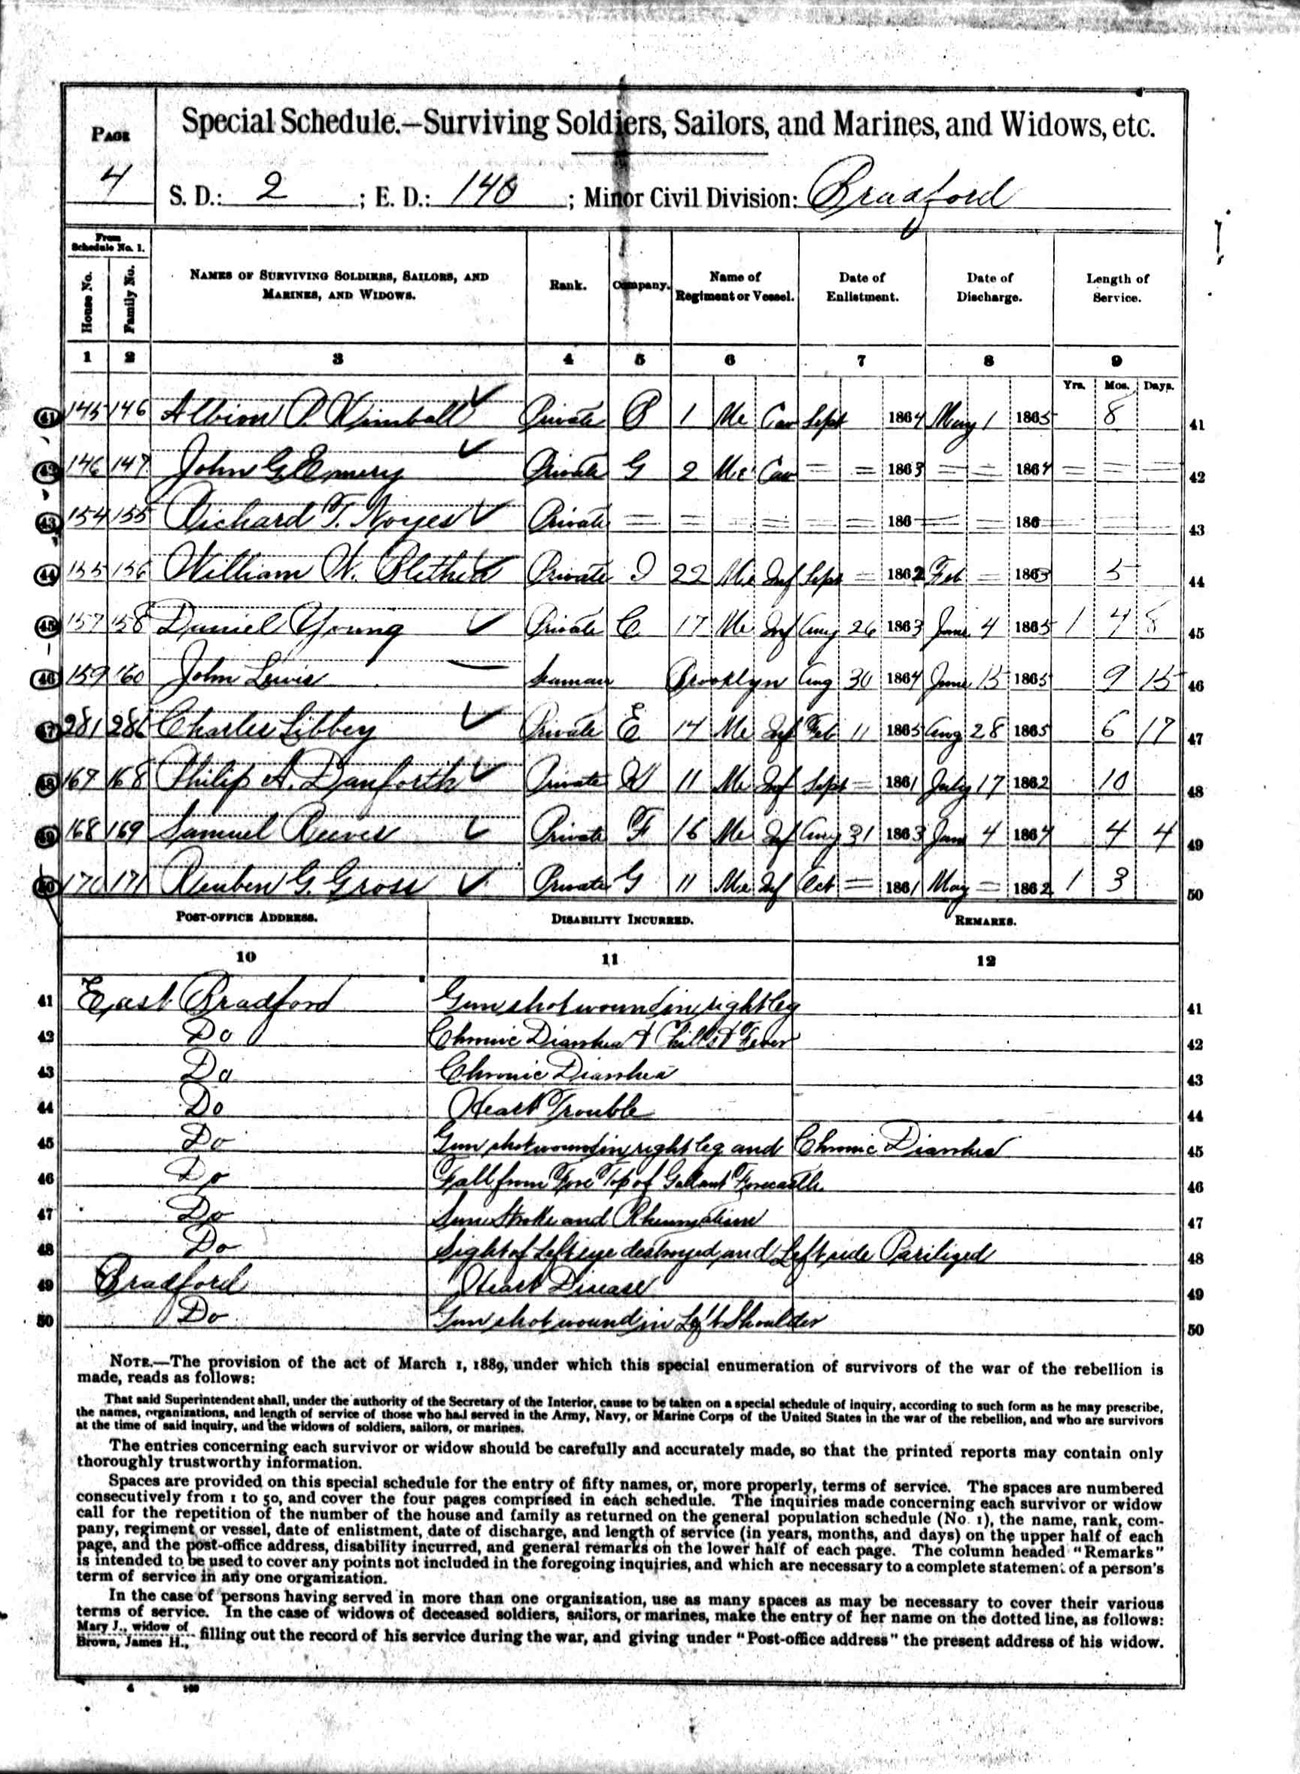 PAGE
4
Special Schedule.—Surviving Soldiers, Sailors, and Marines, and Widows, etc.
S. D.: 2 ; E. D.: 140 ; Minor Civil Division: Bradford
From Schedule No. 1.
House No. Family No. NAMES OF SURVIVING SOLDIERS, SAILORS, AND MARINES, AND WIDOWS. Rank. Company. Name of Regiment or Vessel. Date of Enlistment. Date of Discharge. Length of Service.
1 2 3 4 5 6 7 8 9
Yrs. Mos. Days.
41 145 146 Albion P. Kimball Private B 1 Me Cav Sept 1864 May 1 1865 8 41
42 146 147 John G Emery Private G 2 Me Cav = = 1863 = = 1864 = = = 42
43 154 155 Richard T. Noyes Private = = = = = = 186 = = 186 = = = 43
44 155 156 William W. Private I 22 Me Inf Sept = 1862 Feb = 1863 5 44
45 157 158 Daniel Young Private C 17 Me Inf Aug 26 1863 June 4 1865 1 4 8 45
46 159 160 John Lewis Seaman Brooklyn Aug 30 1864 June 15 1865 9 15 46
47 281 286 Charles Libbey Private E 14 Me Inf Feb 11 1865 Aug 28 1865 6 17 47
48 167 168 Philip A. Danforth Private K 11 Me Inf Sept = 1861 July 17 1862 10 48
49 168 169 Samuel Reeves Private F 16 Me Inf Aug 31 1863 Jan 4 1864 4 4 49
50 170 171 Reuben G. Gross Private G 11 Me Inf Oct = 1861 May = 1862 1 3 50
POST-OFFICE ADDRESS. DISABILITY INCURRED. REMARKS.
10 11 12
41 East Bradford Gun shot wound in right leg 41
42 Do Chronic Diarrhea & Chills & Fever 42
43 Do Chronic Diarrhea 43
44 Do Heart Trouble 44
45 Do Gun shot wound in right leg and Chronic Diarrhea 45
46 Do Fall from Fore Top of Gallant Forecastle 46
47 Do Sun Stroke and Rheumatism 47
48 Do Sight of Left eye destroyed and Left side Parilized 48
49 Bradford Heart Disease 49
50 Do Gun shot wound in Left Shoulder 50
NOTE.—The provision of the act of March 1, 1889, under which this special enumeration of survivors of the war of the rebellion is
made, reads as follows:
That said Superintendent shall, under the authority of the Secretary of the Interior, cause to be taken on a special schedule of inquiry, according to such form as he may prescribe,
the names, organizations, and length of service of those who had served in the Army, Navy, or Marine Corps of the United States in the war of the rebellion, and who are survivors
at the time of said inquiry, and the widows of soldiers, sailors, or marines.
The entries concerning each survivor or widow should be carefully and accurately made, so that the printed reports may contain only
thoroughly trustworthy information.
Spaces are provided on this special schedule for the entry of fifty names, or, more properly, terms of service. The spaces are numbered
consecutively from 1 to 50, and cover the four pages comprised in each schedule. The inquiries made concerning each survivor or widow
call for the repetition of the number of the house and family as returned on the general population schedule (No. 1), the name, rank, com-
pany, regiment or vessel, date of enlistment, date of discharge, and length of service (in years, months, and days) on the upper half of each
page, and the post-office address, disability incurred, and general remarks on the lower half of each page. The column headed "Remarks"
is intended to be used to cover any points not included in the foregoing inquiries, and which are necessary to a complete statement of a person's
term of service in any one organization.
In the case of persons having served in more than one organization, use as many spaces as may be necessary to cover their various
terms of service. In the case of widows of deceased soldiers, sailors, or marines, make the entry of her name on the dotted line, as follows:
Mary J., widow of
Brown, James H., filling out the record of his service during the war, and giving under "Post-office address" the present address of his widow.